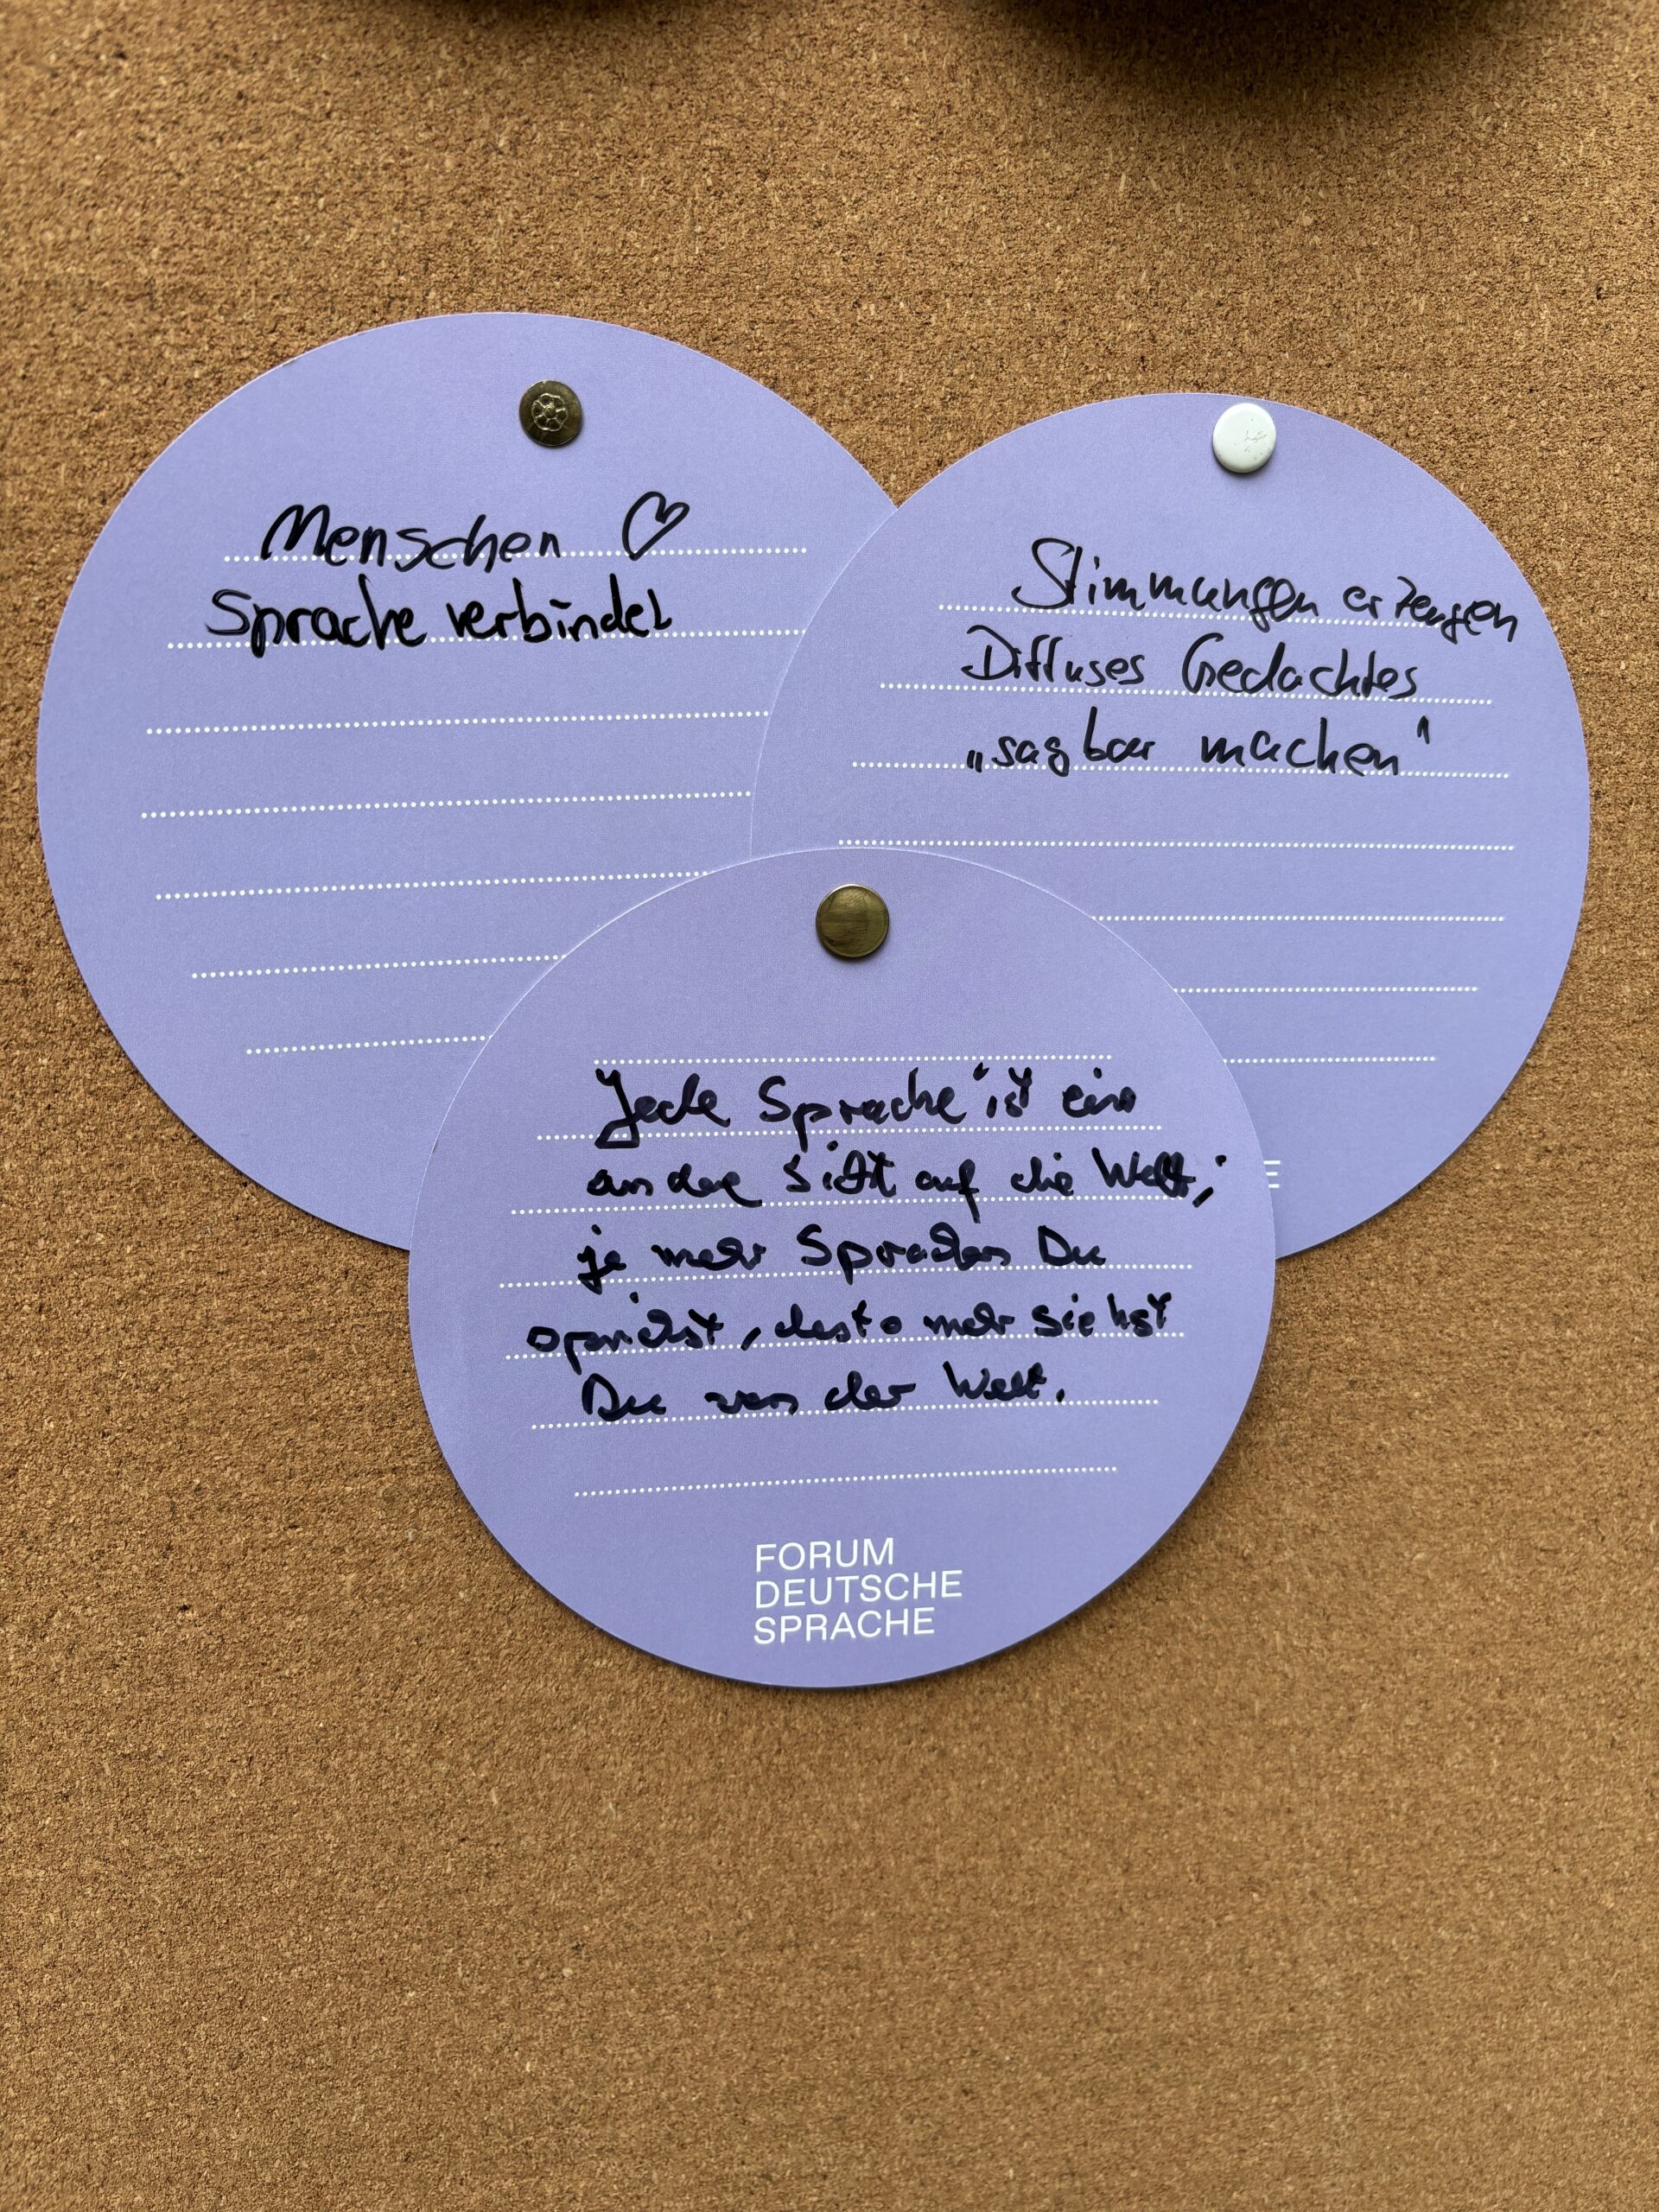 Menschen ♡
Sprache verbindet
Stimmungen erzeugen
Diffuses Gedachtes
„sagbar machen“
Jede Sprache ist eine
andere Sicht auf die Welt;
je mehr Sprachen Du
sprichst, desto mehr siehst
Du von der Welt.
FORUM
DEUTSCHE
SPRACHE
E